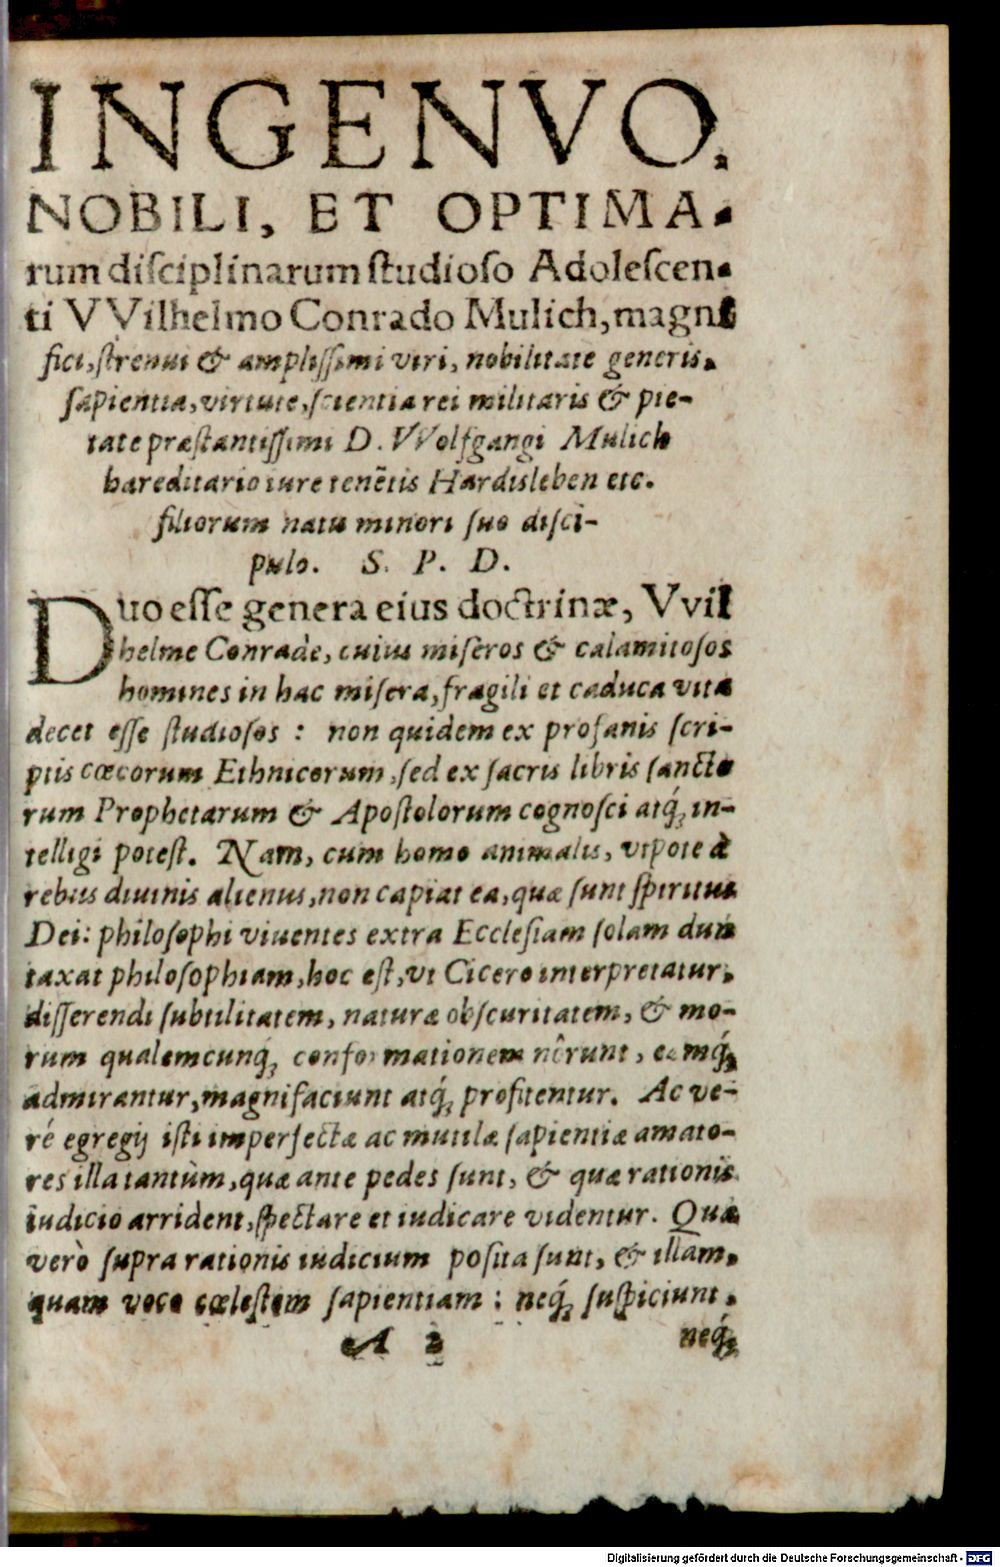 INGENVO,
NOBILI, ET OPTIMA-
rum disciplinarum studioso Adolescen-
ti VVilhelmo Conrado Mulich, magni
fici, strenui & amplissimi viri, nobilitate generis,
sapientia, virtute, scientia rei militaris & pie-
tate præstantissimi D. VVolfgangi Mulich
hareditario iure tenẽtis Hardisleben etc.
filiorum natu minori suo disci-
pulo. S. P. D.
Duo esse genera eius doctrinæ, Vvil
helme Conrade, cuius miseros & calamitosos
homines in hac misera, fragili et caduca vita
decet esse studiosos : non quidem ex profanis scri-
ptis cœcorum Ethnicorum, sed ex sacris libris sancto
rum Prophetarum & Apostolorum cognosci atq́; in-
telligi potest. Nam, cum homo animalis, vtpote à
rebus diuinis alienus, non capiat ea, quæ sunt spiritus
Dei: philosophi viuentes extra Ecclesiam solam dun
taxat philosophiam, hoc est, vt Cicero interpretatur,
disserendi subtilitatem, naturæ obscuritatem, & mo-
rum qualemcunq́; conformationem nôrunt, eamq́;
admirantur, magnifaciunt atq́; profitentur. Ac ve-
ré egregij isti imperfectæ ac mutilæ sapientiæ amato-
res illa tantùm, quæ ante pedes sunt, & quæ rationis
iudicio arrident, spectare et iudicare videntur. Quæ
verò supra rationis iudicium posita sunt, & illam,
quam voco cœlestem sapientiam : neq́; suspiciunt,
A 2 neq́;
Digitalisierung gefördert durch die Deutsche Forschungsgemeinschaft - DFG